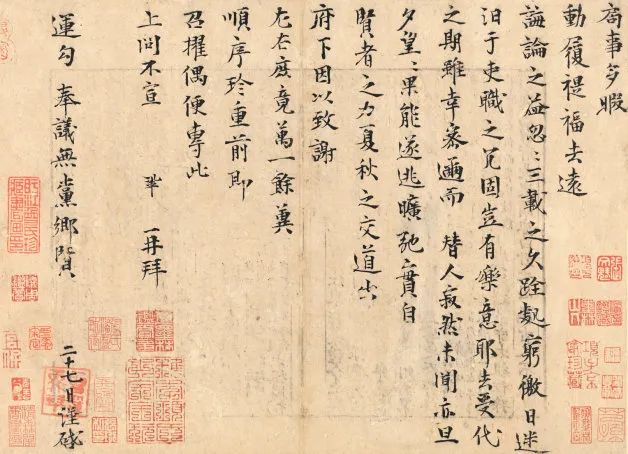 局事多暇
動履禔福去遠
誨論之益忽〻三載之久跧處窮徼日迷
汨于吏職之冗固豈有樂意耶去受代
之期雖幸密邇而 替人寂然未聞亦旦
夕望〻果能遂逃曠弛實自
賢者之力夏秋之交道出
府下因以致謝
左右庶竟萬一餘冀
順序珍重前即
召擢偶便專此
上問不宣 鞏 再拜
運勾 奉議無黨鄉賢 二十七日謹啟